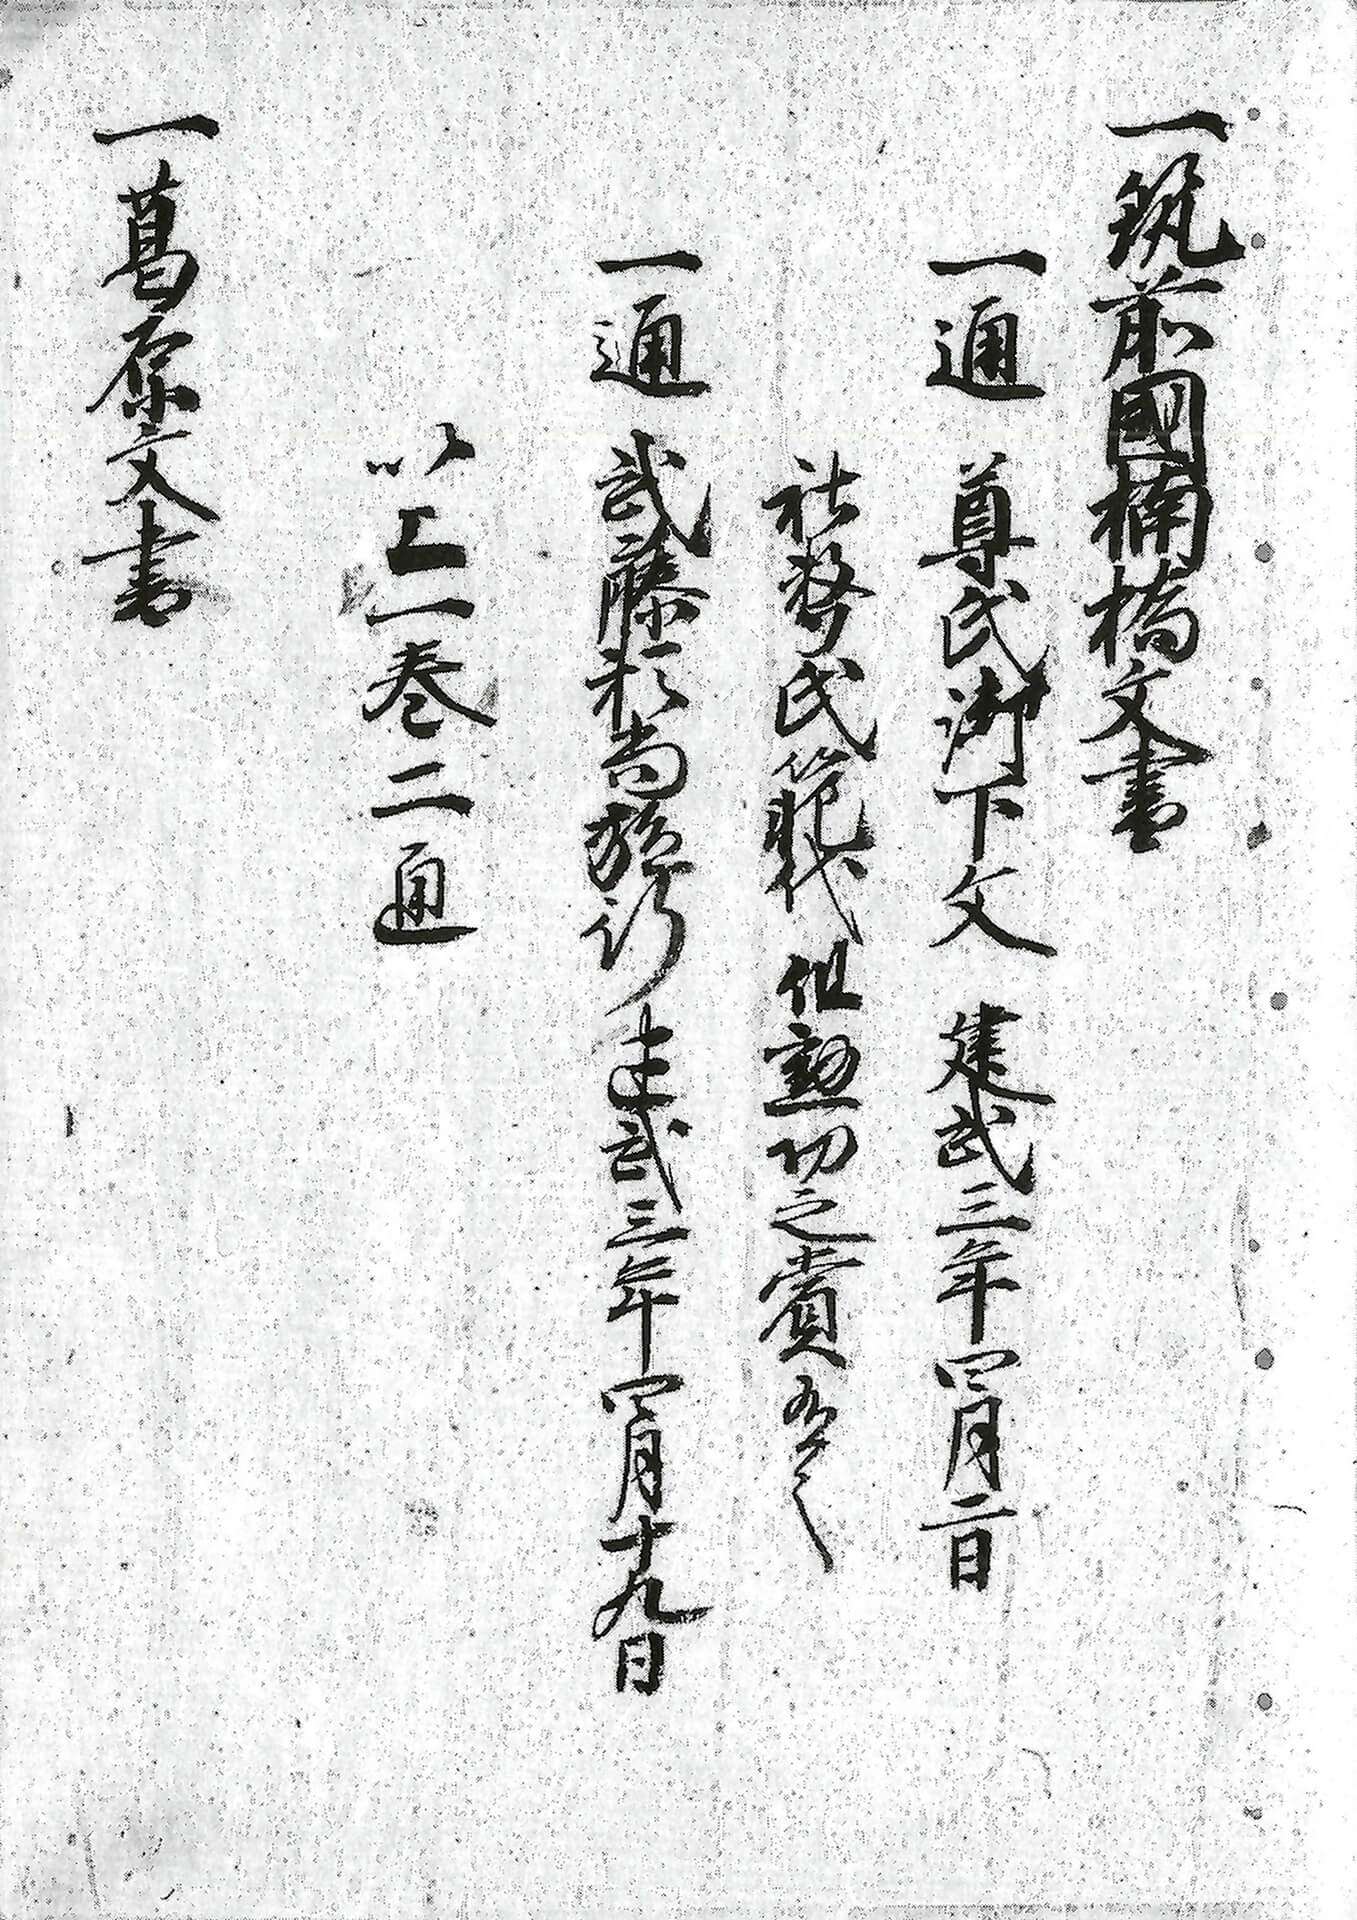 一筑前國楠橋文書
一通 尊氏御下文 建武三年四月二日
社務氏範代 但勲功之賞
一通 武藤 尚施行 建武三年四月十九日
以上一巻二通
一葛原文書